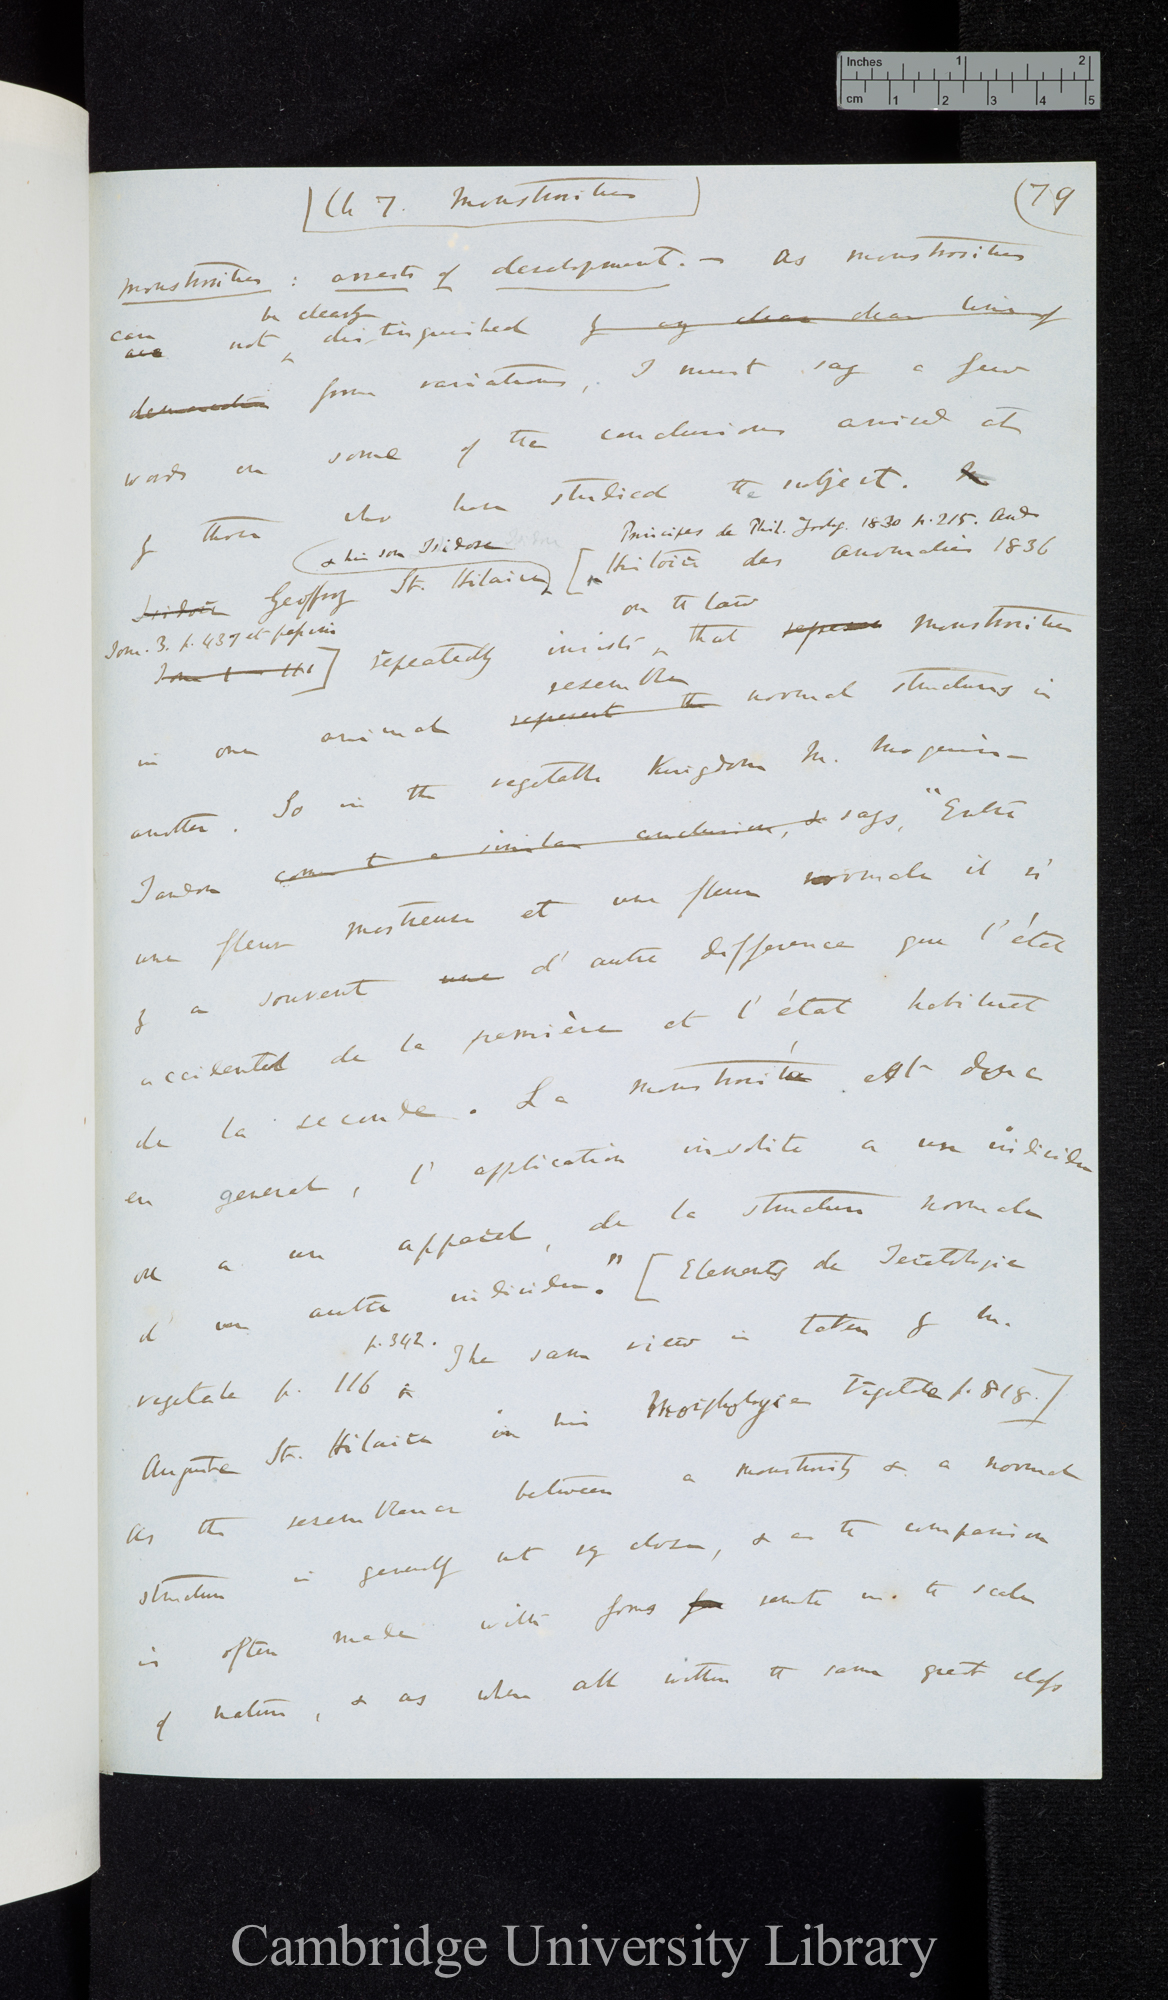 Inches 1 2
cm 1 2 3 4 5
Ch 7. Monstrosities
79
Monstrosities : arrests of development. — As monstrosities
can be clearly
are not distinguished by any clear clear line of
demarcation from variations, I must say a few
words on some of the conclusions arrived at
by those who have studied the subject.
& his son Isidore Principes de Phil. Zoolog. 1830 p. 215. and
Isidore Geoffroy St. Hilaire [ Histoire des Anomalies 1836
Tom. 3. p. 437 et passim on the law
Tom 1 — III ] repeatedly insists that monstrosities
resemble
in one animal represent the normal structures in
another. So in the vegetable Kingdom M. Moquin-
Tandon comes to a similar conclusion, & says, "Entre
une fleur mostreuse et une fleur normale il n'
y a souvent une d'autre difference que l'état
accidentel de la première et l'état habituel
de la seconde. La monstruosité est donc
en general, l'application insolite a un individu
ou a un appareil, de la structure normale
d'un autre individu." [Elements de Teratologie
p. 342.
vegetale p. 116 The same view is taken by M.
Auguste St. Hilaire in his Morphologie Vegetale p. 818.]
As the resemblance between a monstrosity & a normal
structure is generally not very close, & as the comparison
is often made with forms remote in the scale
of nature, & as when all within the same great class
Cambridge University Library